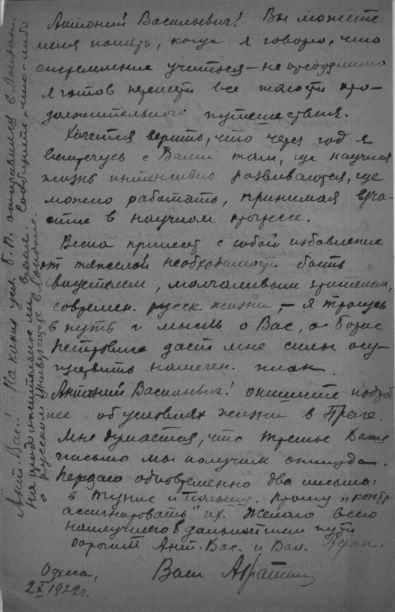 Антоний Васильевич! Вы можете
меня понять, когда я говорю, что
стремление учиться – непреодолимо
Я готов перенести все тягости про-
должительного путешествия.
Хочется верить, что через год я
встречусь с Вами там, где научная
жизнь интенсивно развивается, где
можно работать, принимая уча-
стие в научном прогрессе.
Весна принесет с собой избавление
от тяжелой необходимости быть
свидетелем, молчаливым зрителем,
современ. русск. жизни, – я тронусь
в путь и мысль о Вас, о Борис
Петровиче даст мне силы осу-
ществить намечен. план.
Антоний Васильевич! опишите подроб
нее об условиях жизни в Праге.
Мне думается, что третье Ваше
письмо мы получим оттуда.
Передаю одновременно два письма:
в Тунис и Польшу. Прошу „
" их. Желаю всего
наилучшего в дальнейшем пути
дорогим Ант. Вас. и Вал.
Одесса, Ваш
2 X 1922 г.
Ант. Вас.! На каких усл. Б. П. отправился в
На продолжительное ли время. Сообщите, что-либо
о русском университете в